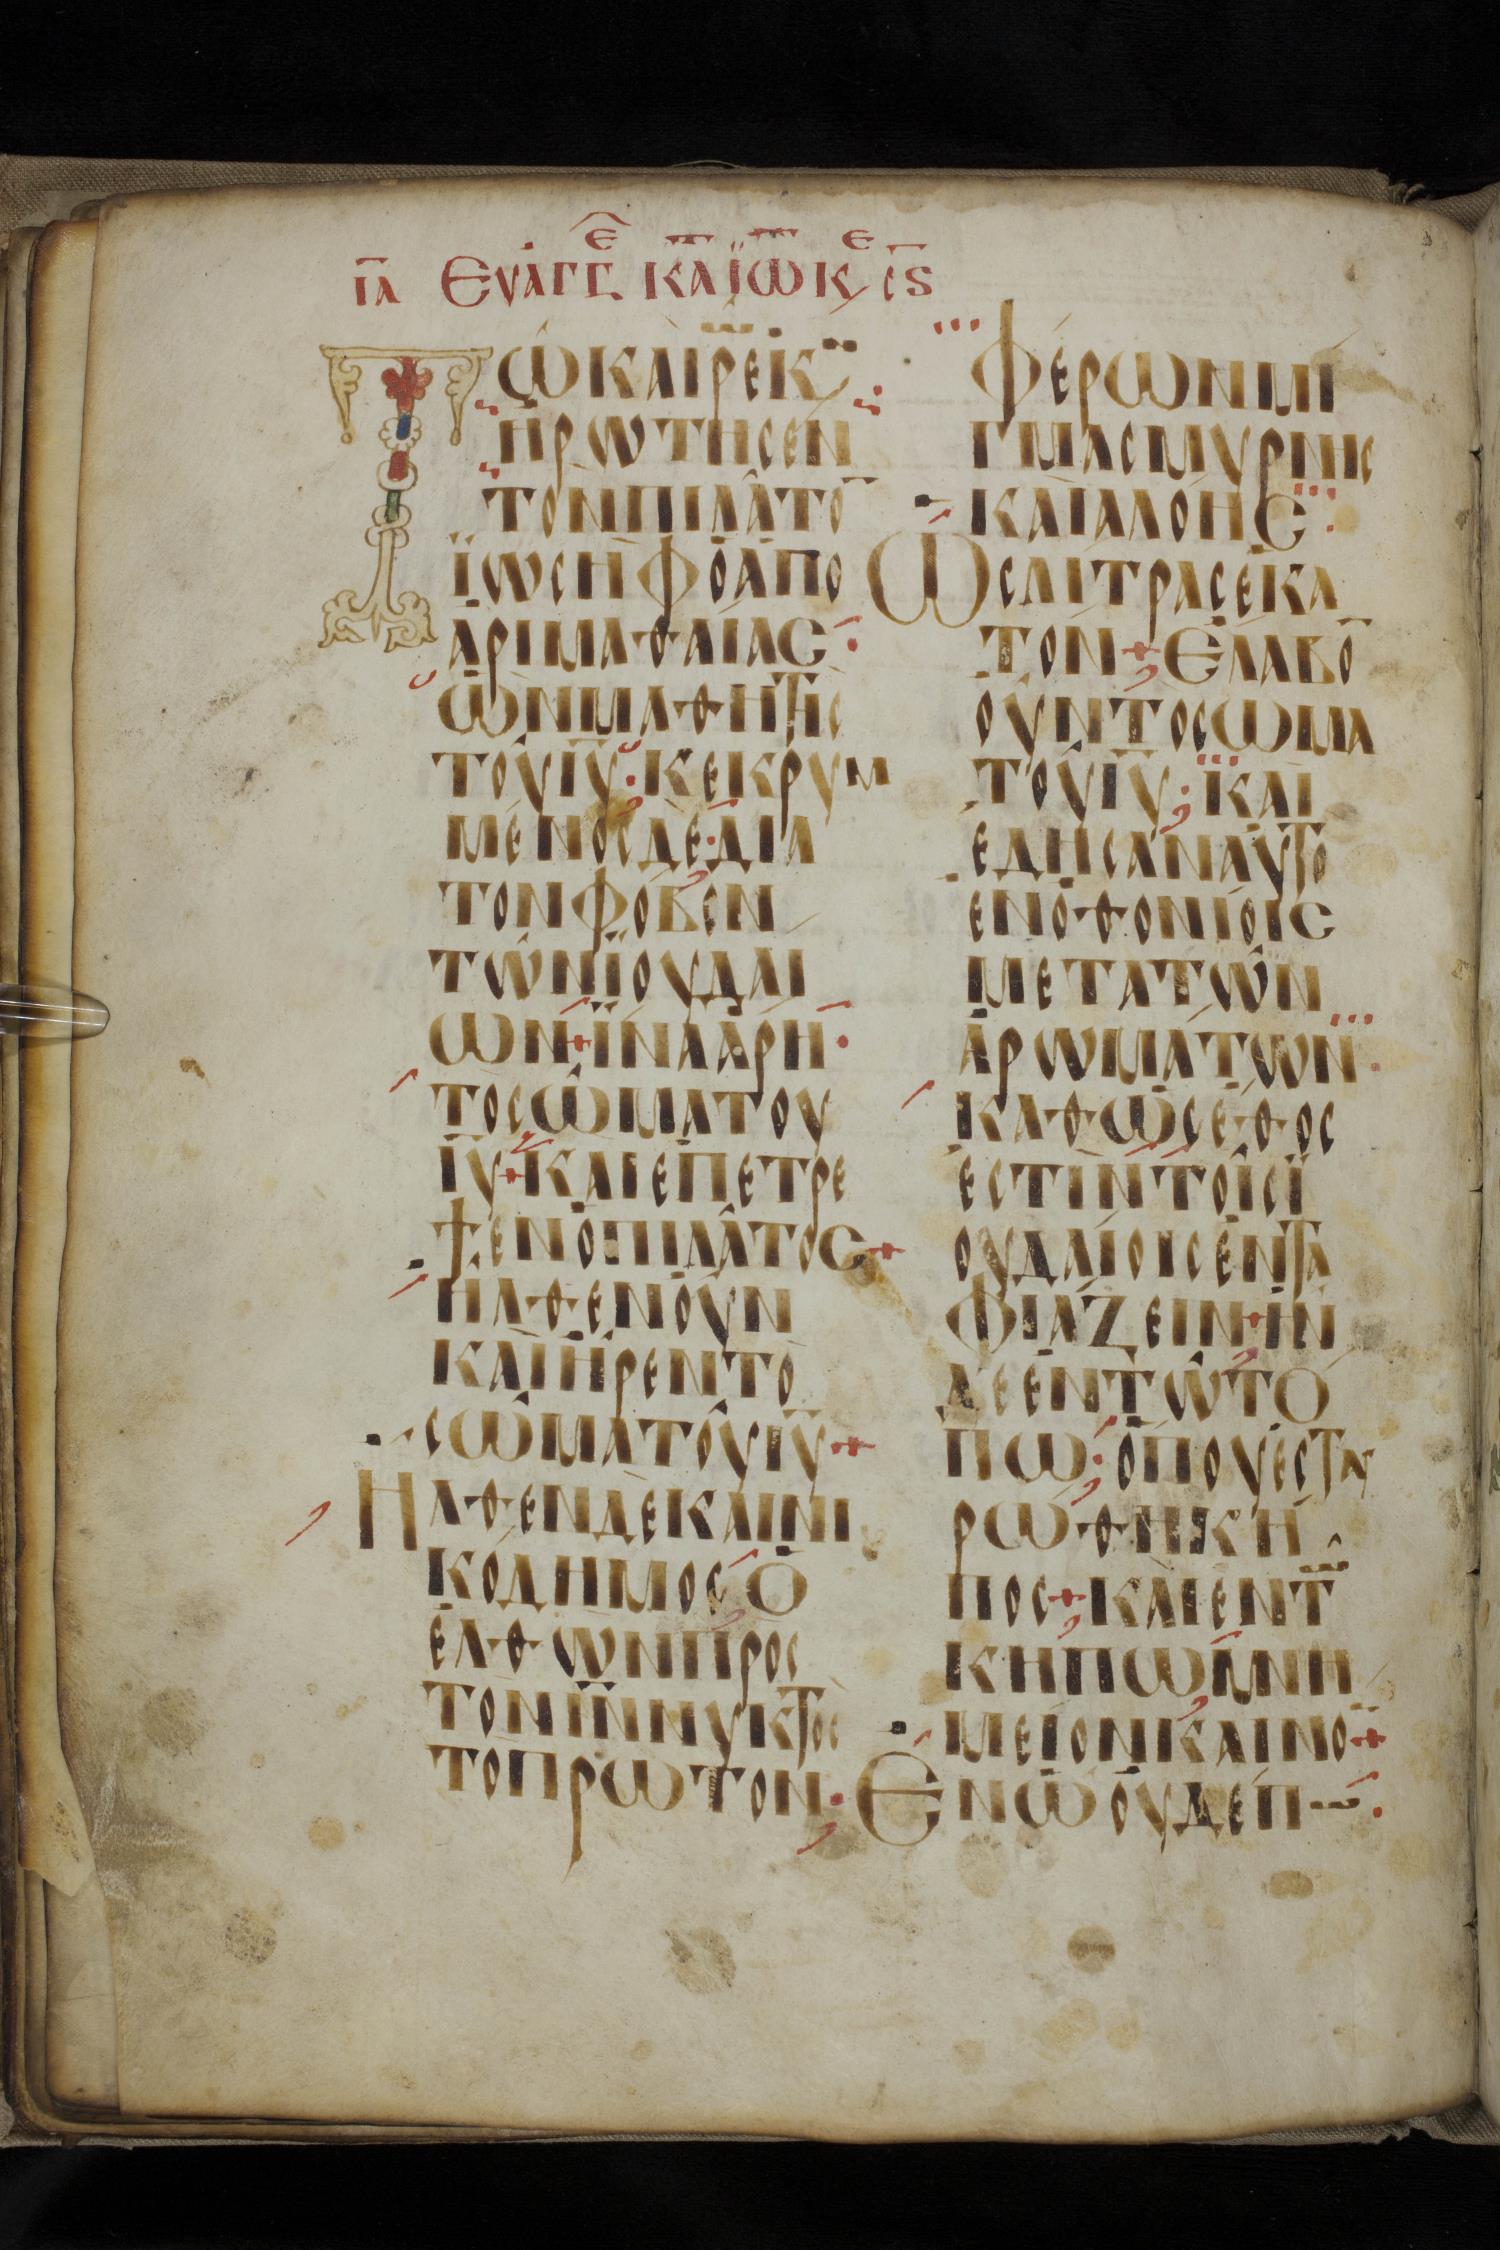 ῙΑ ΕΥΑΓΓΕ ΚΑΪΩ ΚΕ ϹϚ
ΤΩΚΑΙΡΕΚ
ΗΡΩΤΗϹΕΝ
ΤΟΝΠΙΛΑΤΟ̅
ΪΩϹΗΦΟΑΠΟ
ΑΡΙΜΑΘΑΙΑϹ
ΩΝΜΑΘΗΤΗϹ
ΤΟΥΙ̅Υ̅·ΚΕΚΡΥΜ
ΜΕΝΟϹΔΕ·ΔΙΑ
ΤΟΝΦΟΒΟΝ
ΤΩΝΪΟΥΔΑΙ
ΩΝ+ΪΝΑΑΡΗ·
ΤΟϹΩΜΑΤΟΥ
Ι̅Υ̅+ΚΑΙΕΠΕΤΡΕ
ΨΕΝΟΠΙΛΑΤΟϹ+
ΗΛΘΕΝΟΥΝ
ΚΑΙΗΡΕΝΤΟ
ϹΩΜΑΤΟΥΙ̅Υ̅+
ΗΛΘΕΝΔΕΚΑΙΝΙ
ΚΟΔΗΜΟϹΟ
ΕΛΘΩΝΠΡΟϹ
ΤΟΝΙ̅Ν̅ΝΥΚΤΟϹ
ΤΟΠΡΩΤΟΝ·
ΦΕΡΩΝΜΙ
ΓΜΑϹΜΥΡΝΗϹ
ΚΑΙΑΛΟΗϹ·
ΩϹΛΙΤΡΑϹΕΚΑ
ΤΟΝ+ΕΛΑΒΟ̅
ΟΥΝΤΟϹΩΜΑ
ΤΟΥΙ̅Υ̅·ΚΑΙ
ΕΔΗϹΑΝΑΥΤΟ
ΕΝΟΘΟΝΙΟΙϹ
ΜΕΤΑΤΩΝ
ΑΡΩΜΑΤΩΝ·
ΚΑΘΩϹΕΘΟϹ
ΕϹΤΙΝΤΟΙϹΪ
ΟΥΔΑΙΟΙϹΕΝΤΑ
ΦΙΑΖΕΙΝ+ΗΝ
ΔΕΕΝΤΩΤΟ
ΠΩ·ΟΠΟΥΕϹΤΑΥ
ΡΩΘΗΚΗ
ΠΟϹ+ΚΑΙΕΝΤ
ΚΗΠΩΜΝΗ
ΜΕΙΟΝΚΑΙΝΟ̅+
ΕΝΩΟΥΔΕΠΩ·